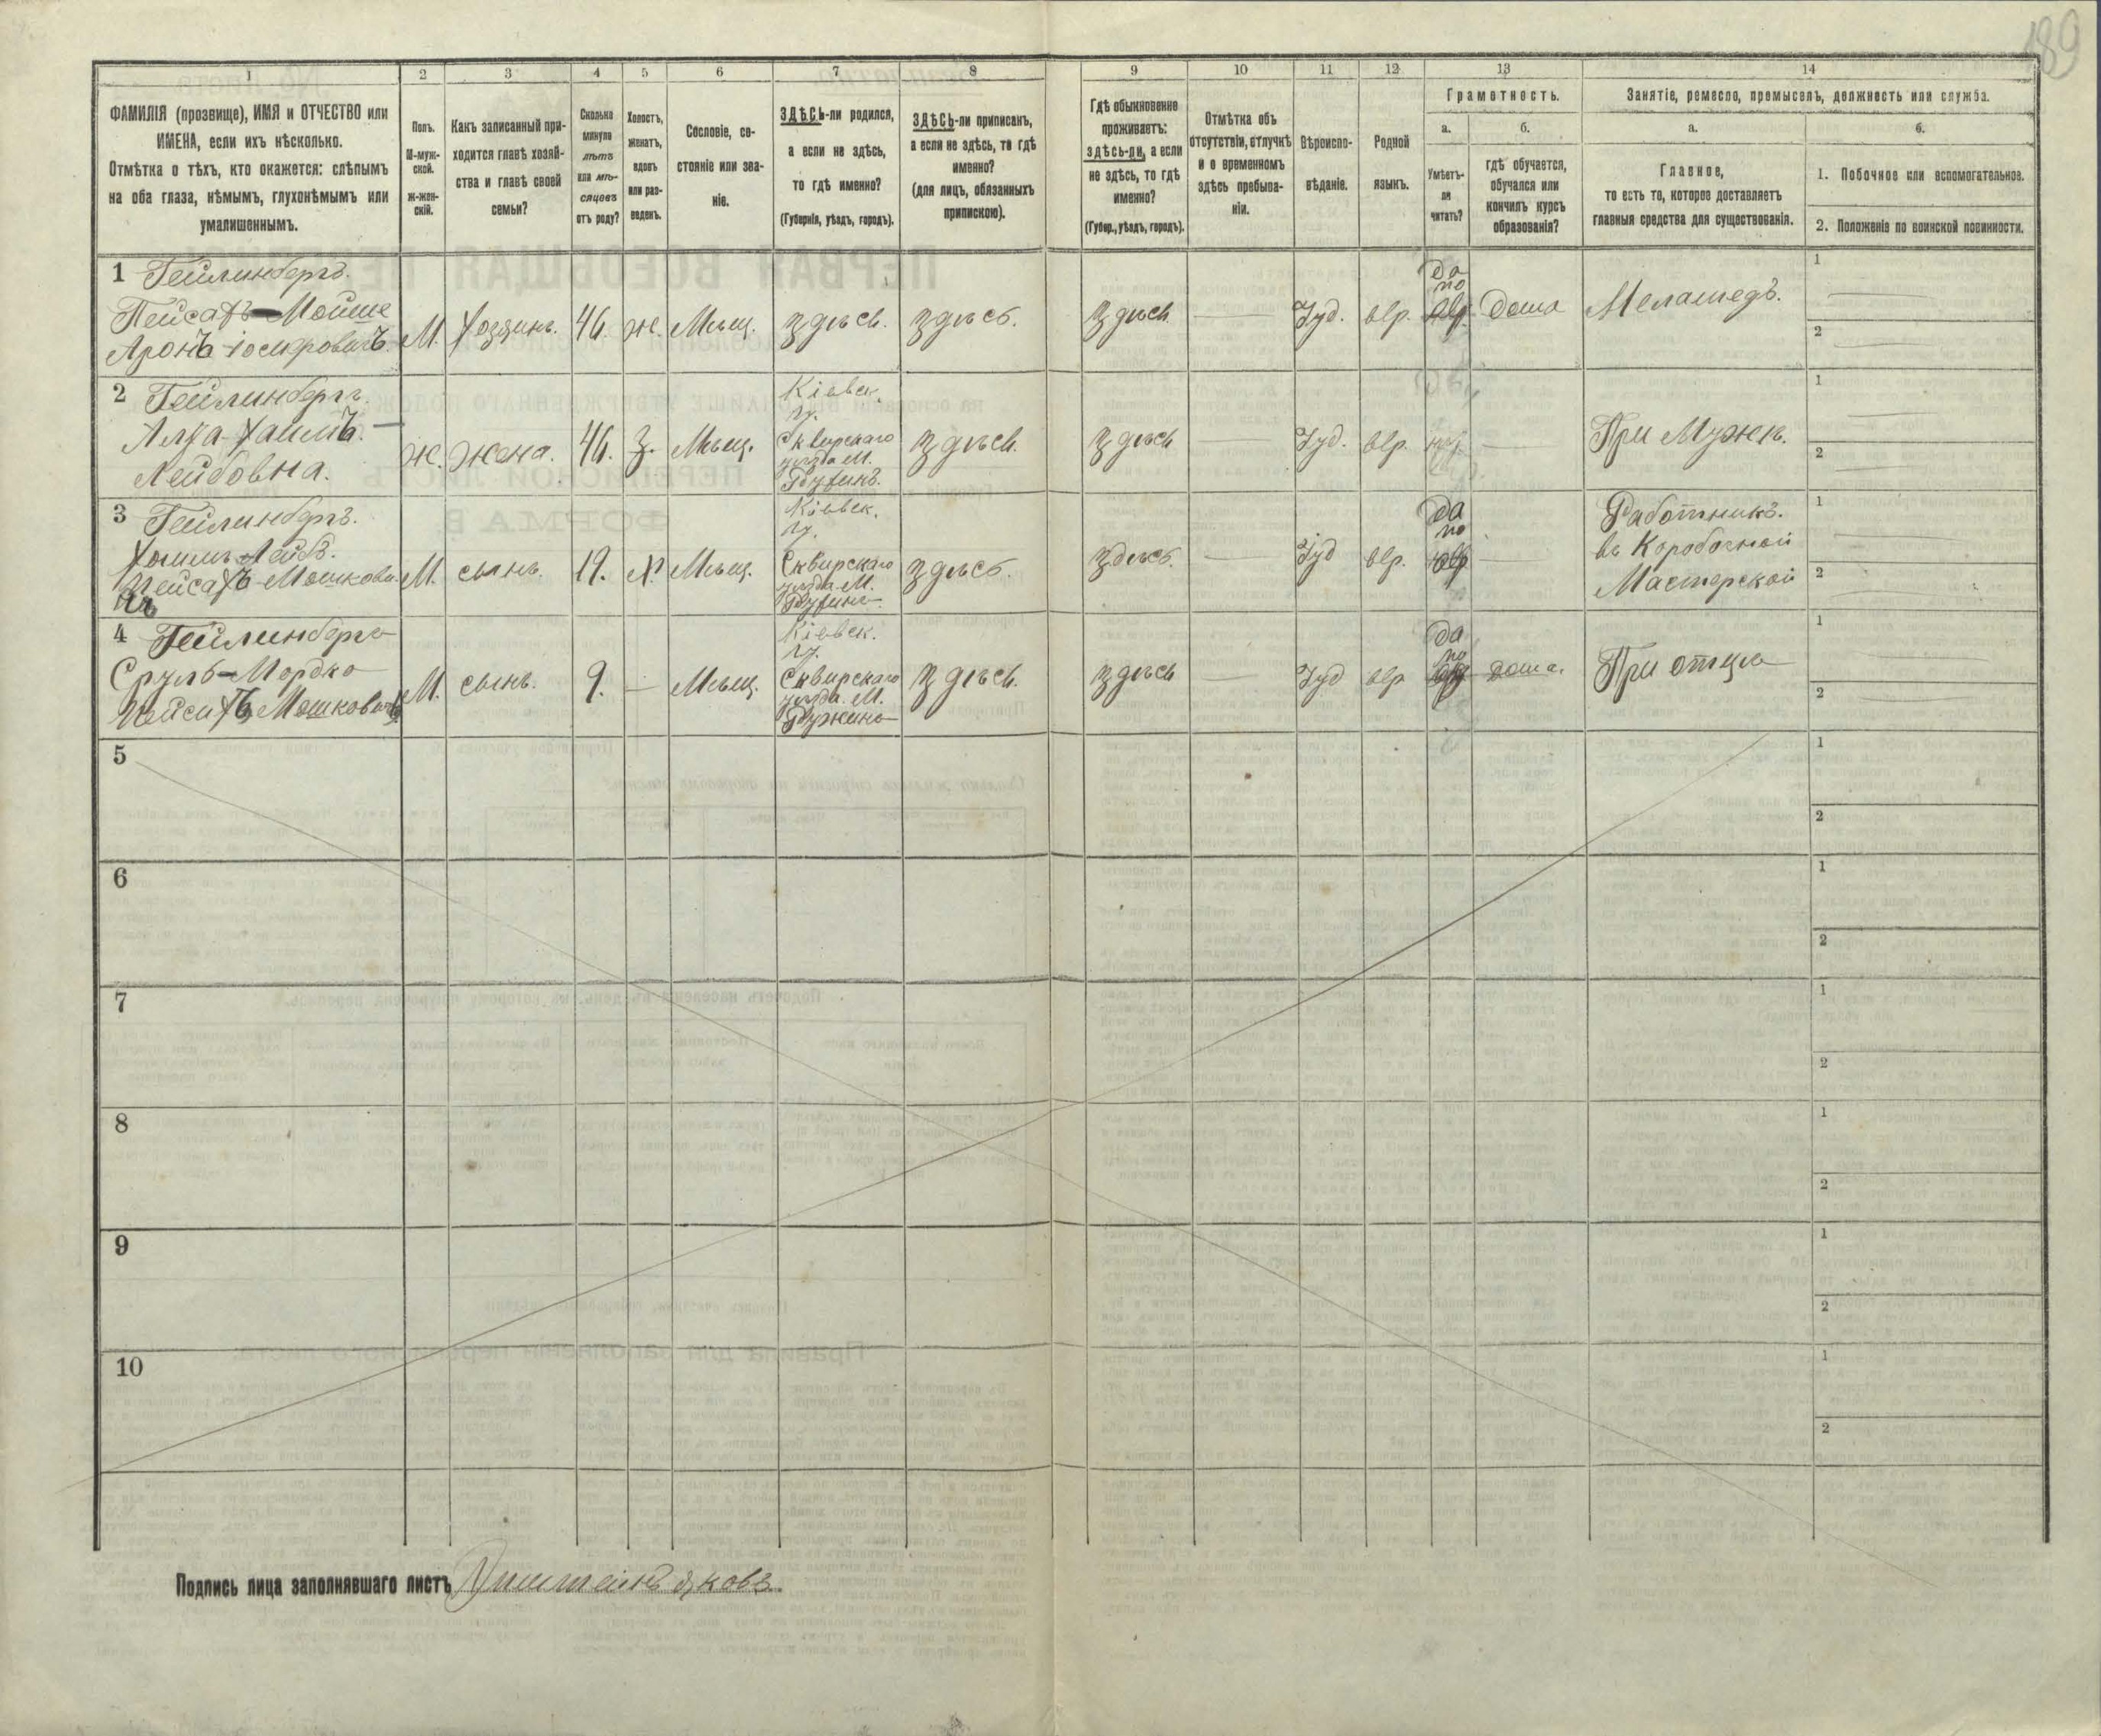 189
1 2 3 4 5 6 7 8 9 10 11 12 13 14
ФАМИЛІЯ (прозвище), ИМЯ и ОТЧЕСТВО или
ИМЕНА, если ихъ нѣсколько.
Отмѣтка о тѣхъ, кто окажется: слѣпымъ
на оба глаза, нѣмымъ, глухонѣмымъ или
умалишеннымъ.
Полъ.
М-муж-
ской.
ж-жен-
скій.
Какъ записанный при-
ходится главѣ хозяй-
ства и главѣ своей
семьи?
Сколько
минуло
лѣтъ
или мѣ-
сяцевъ
отъ роду?
Холостъ,
женатъ,
вдовъ
или раз-
веденъ.
Сословіе, со-
стояніе или зва-
ніе.
ЗДѢСЬ-ли родился,
а если не здѣсь,
то гдѣ именно?
(Губернія, уѣздъ, городъ).
ЗДѢСЬ-ли приписанъ,
а если не здѣсь, то гдѣ
именно?
(для лицъ, обязанныхъ
припискою).
Гдѣ обыкновенно
проживаетъ:
здѣсь-ли, а если
не здѣсь, то гдѣ
именно?
(Губер., уѣздъ, городъ).
Отмѣтка объ
отсутствіи, отлучкѣ
и о временномъ
здѣсь пребыва-
ніи.
Вѣроиспо-
вѣданіе.
Родной
языкъ.
Грамотность.
а.
Умѣетъ-
ли
читать?
б.
гдѣ обучается,
обучался или
кончилъ курсъ
образованія?
Занятіе, ремесло, промыселъ, должность или служба.
а.
Главное,
то есть то, которое доставляетъ
главныя средства для существованія.
б.
1. Побочное или вспомогательное.
2. Положеніе по воинской повинности.
1 Гейлинбергъ.
Пейсахъ-Мойше
Аронъ-Іосифовичъ.
М.
Хозяинъ.
46.
ж.
Мѣщ.
здѣсь.
здѣсь.
здѣсь
Іуд.
евр.
да
по
евр.
Дома
Меламедъ.
1
2
2 Гейлинбергъ.
Хаимъ-
Лейбовна.
ж.
жена.
46.
З.
Мѣщ.
Кіевск.
гу.
Сквирскаго
уѣзда М.
здѣсь.
здѣсь
Іуд.
евр.
При Мужѣ.
1
2
3 Гейлинбергъ.
Хаимъ-Лейбъ.
Пейсахъ-Мошкови
чъ
М.
сынъ.
19.
Х.
Мѣщ.
Кіевск.
гу.
Сквирскаго
уѣзда М.
здѣсь.
здѣсь.
Іуд
евр.
да
по
евр
Работникъ.
въ Коробочной
Мастерской
1
2
4 Гейлинбергъ
Сруль-Мордко
Пейсахъ Мошковичъ
М.
сынъ.
9.
Мѣщ.
Кіевск.
гу.
Сквирскаго
уѣзда. М.
Ружина
здѣсь.
здѣсь
Іуд
евр
да
по
евр
дома.
При отцѣ
1
2
5
1
2
6
1
2
7
1
2
8
1
2
9
1
2
10
1
2
Подпись лица заполнявшаго листъ